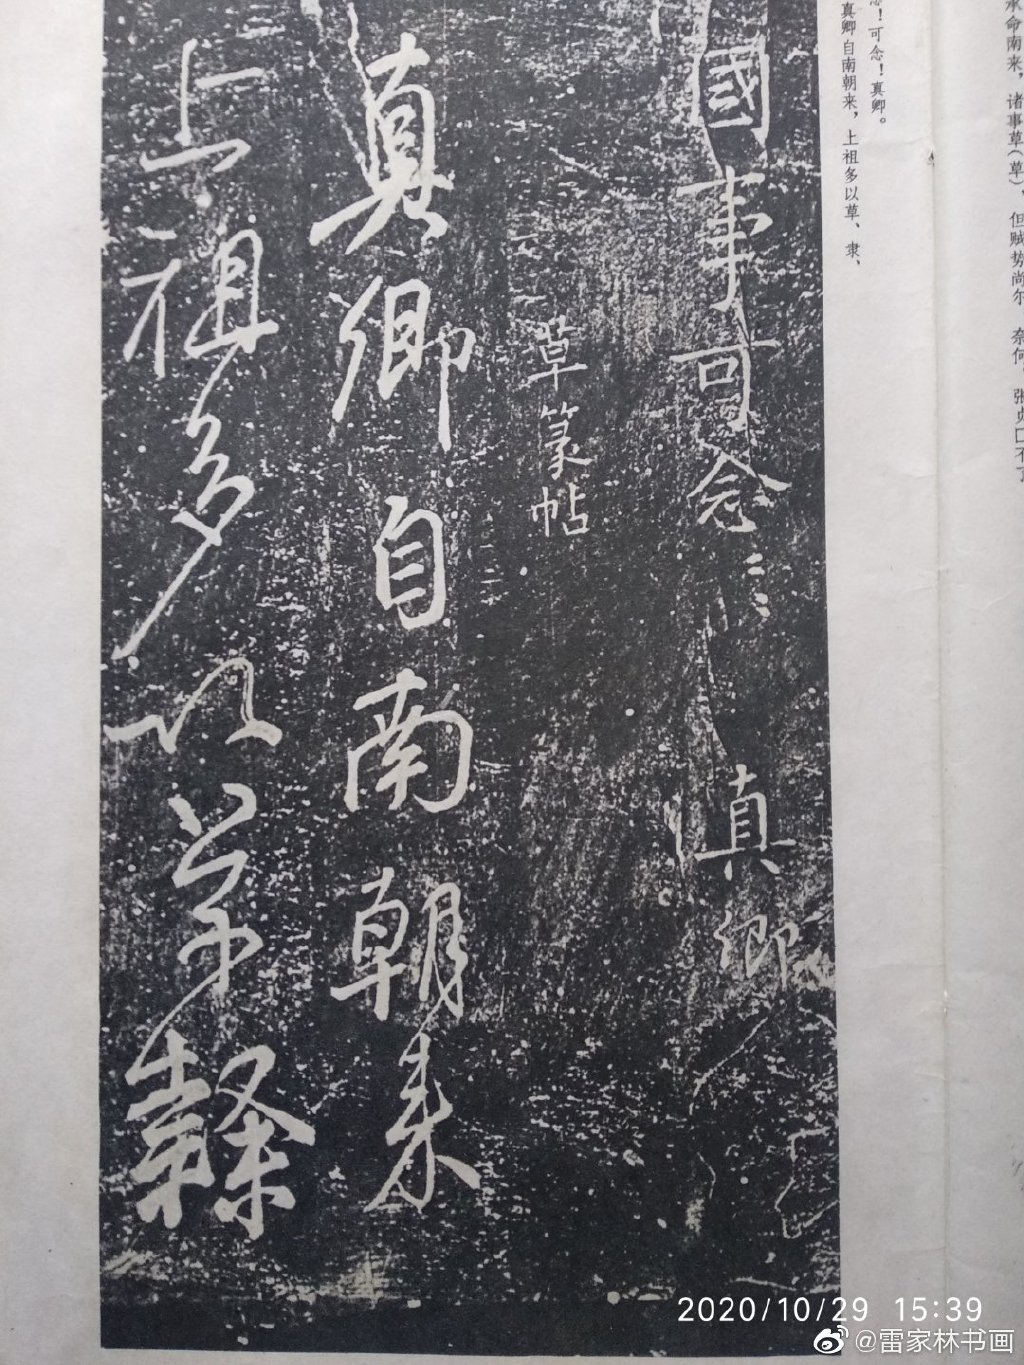 命南来，诸事草（草） 但贼势尚尔 奈何
念！可念！真卿。
真卿自南朝来，上祖多以草、隶、
國事可念〻真卿
草篆帖
真卿自南朝来
上祖多以草隸
2020/10/29 15:39
@雷家林书画